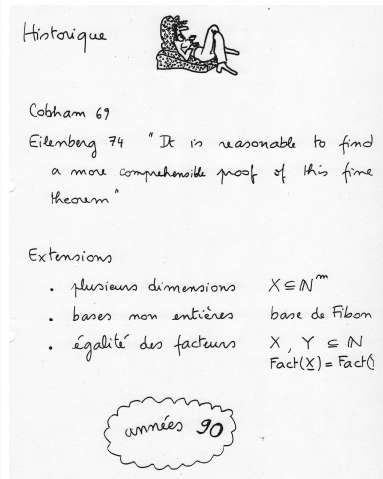 Historique
Cobham 69
Eilenberg 74 "It is reasonable to find
a more comprehensible proof of this fine
theorem"
Extensions
. plusieurs dimensions X ⊆ ℕᵐ
. bases non entières base de Fibon
. égalité des facteurs X, Y ⊆ ℕ
Fact(X) = Fact(
années 90